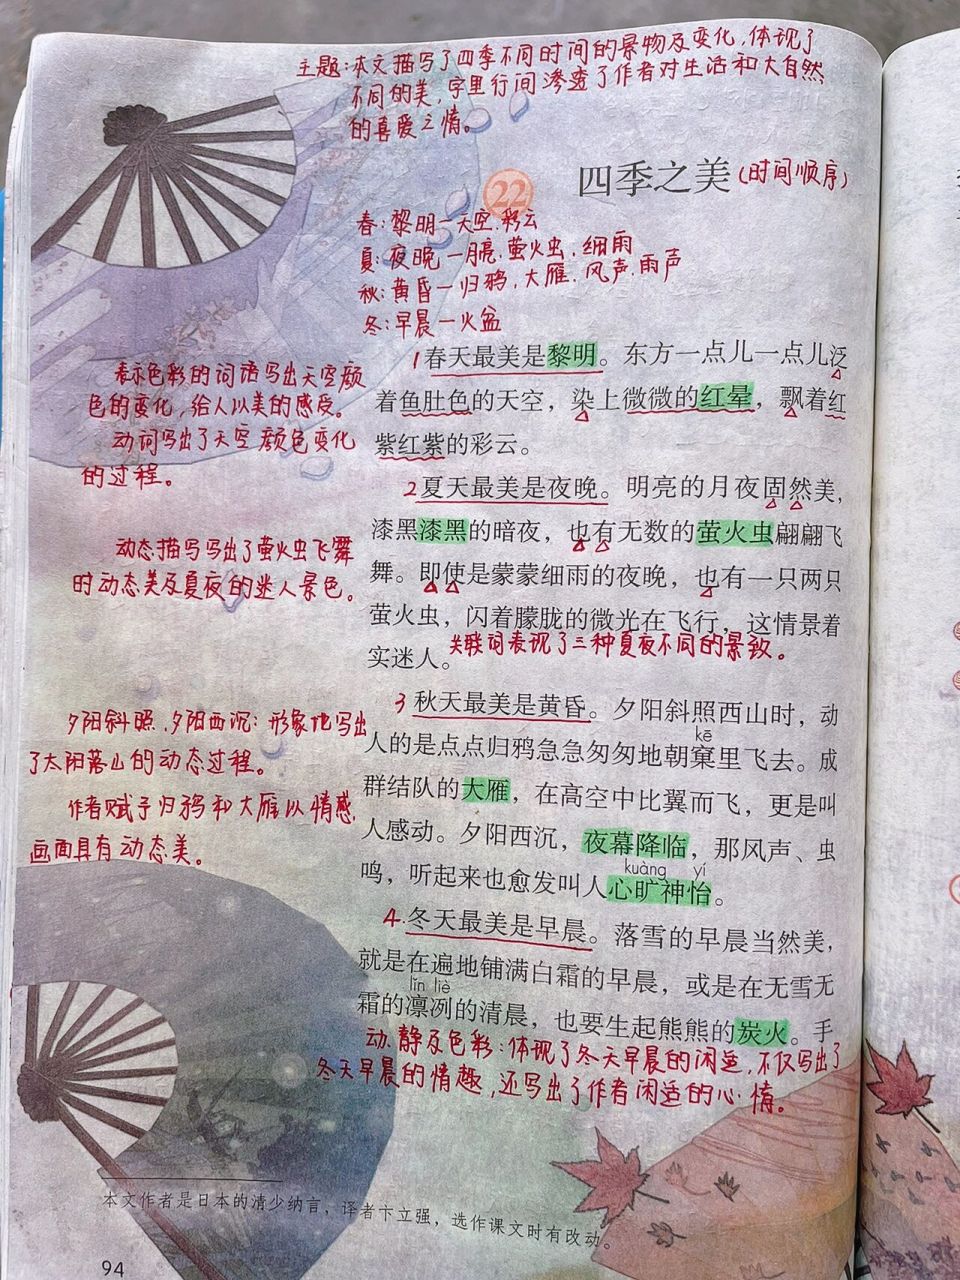 主题:本文描写了四季不同时间的景物及变化,体现了
不同的美,字里行间渗透了作者对生活和大自然
的喜爱之情。
22
四季之美(时间顺序)
春:黎明—天空.彩云
夏:夜晚—月亮.萤火虫、细雨
秋:黄昏—归鸦,大雁.风声.雨声
冬:早晨—火盆
1春天最美是黎明。东方一点儿一点儿泛
着鱼肚色的天空,染上微微的红晕,飘着红
紫红紫的彩云。
表示色彩的词语写出天空颜
色的变化,给人以美的感受。
动词写出了天空颜色变化
的过程。
2夏天最美是夜晚。明亮的月夜固然美,
漆黑漆黑的暗夜,也有无数的萤火虫翩翩飞
舞。即使是蒙蒙细雨的夜晚,也有一只两只
萤火虫,闪着朦胧的微光在飞行,这情景着
实迷人。关联词表现了三种夏夜不同的景致。
动态描写写出了萤火虫飞舞
时动态美及夏夜的迷人景色。
3秋天最美是黄昏。夕阳斜照西山时,动
kē
人的是点点归鸦急急匆匆地朝窠里飞去。成
群结队的大雁,在高空中比翼而飞,更是叫
人感动。夕阳西沉,夜幕降临,那风声、虫
kuàng yí
鸣,听起来也愈发叫人心旷神怡。
夕阳斜照.夕阳西沉:形象地写出
了太阳落山的动态过程。
作者赋予归鸦和大雁以情感
画面具有动态美。
4.冬天最美是早晨。落雪的早晨当然美,
就是在遍地铺满白霜的早晨,或是在无雪无
lǐn liè
霜的凛冽的清晨,也要生起熊熊的炭火。手
动.静及色彩:体现了冬天早晨的闲适,不仅写出了
冬天早晨的情趣,还写出了作者闲适的心情。
本文作者是日本的清少纳言,译者卞立强,选作课文时有改动。
94